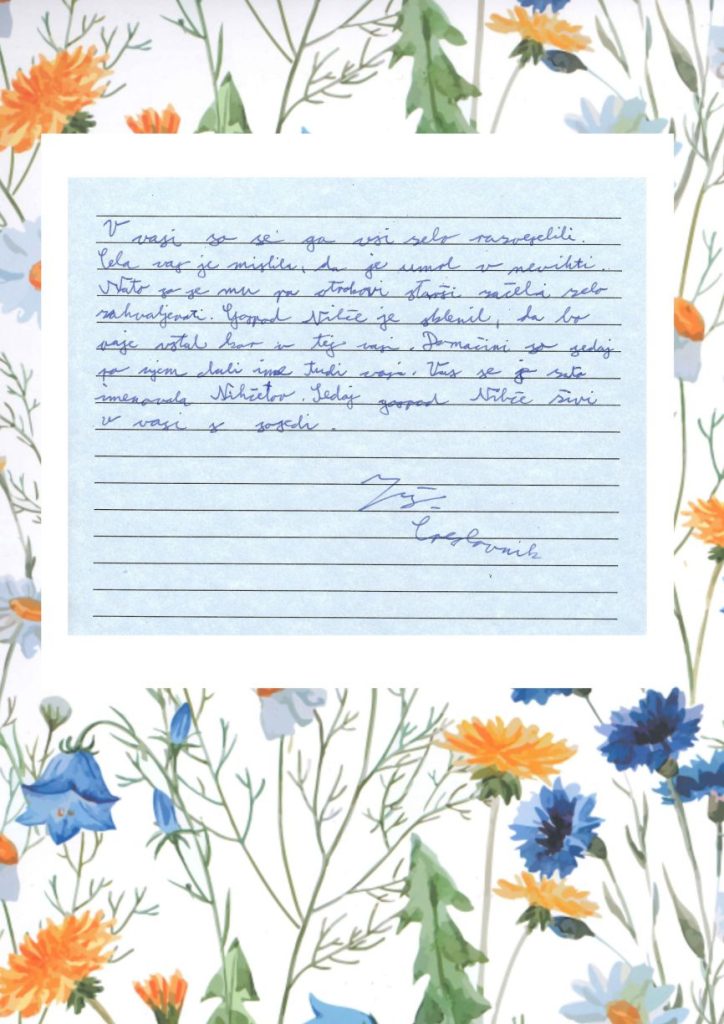 V vasi so se ga vsi zelo razveselili.
Cela vas je mislila, da je umrl v nevihti.
Nato so se mu pa otrokovi starši začeli zelo
zahvaljevati. Gospod Nihče je sklenil, da bo
raje ostal kar v tej vasi. Domačini so sedaj
po njem dali ime tudi vasi. Vas se je zato
imenovala Nihčetov. Sedaj gospod Nihče živi
v vasi s sosedi.